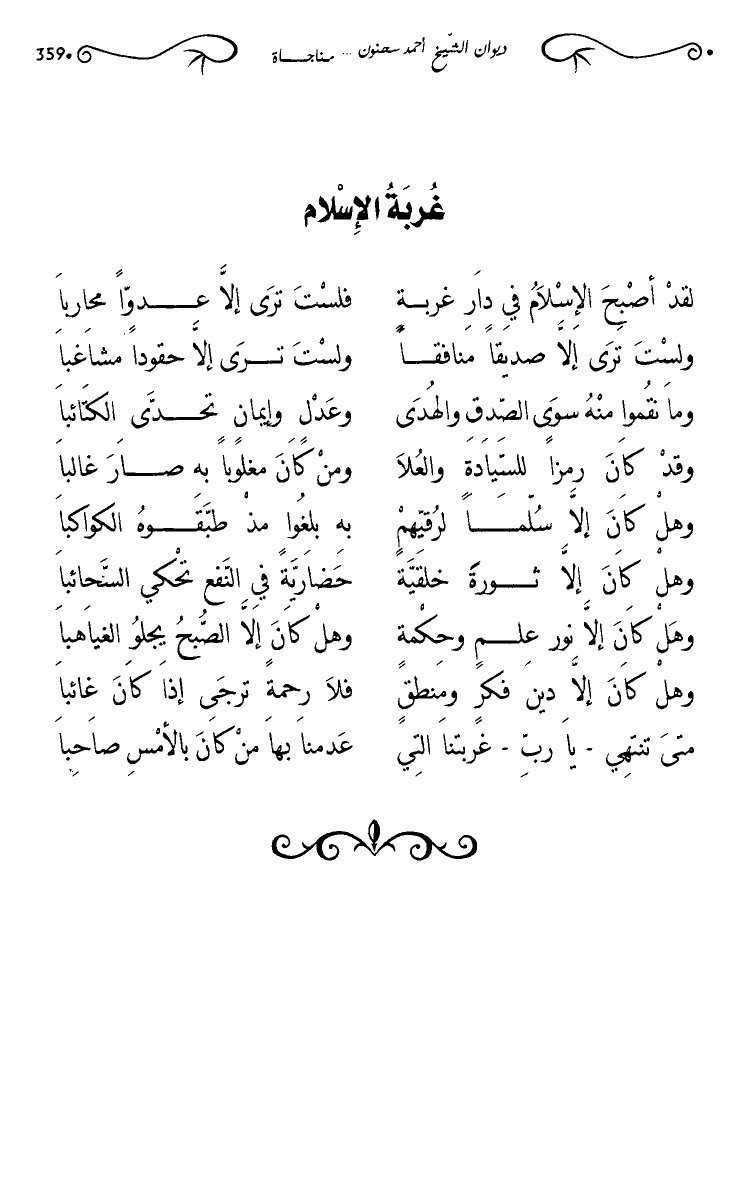 ديوان الشّيخ أحمد سحنون ... مناجاة 359
غُربَةُ الإِسْلام
لقدْ أصْبحَ الإسْلاَمُ في دَارِ غربةٍ فلستَ ترَى إلاَّ عدوّاً محارباَ
ولستَ ترَى إلاَّ صديقاً منافقاً ولستَ ترَى إلاَّ حقوداً مشاغباَ
وماَ نقُموا منْهُ سوَى الصّدقِ والهُدَى وعَدْلٍ وإيمانٍ تحدَّى الكتَائباَ
وقدْ كانَ رمزاً للسّيادةِ والعُلاَ ومنْ كَانَ مغلُوباً به صارَ غالباَ
وهلْ كَانَ إلاَّ سُلّماً لرُقيّهِمْ بهِ بلغُوا مذْ طبَّقوهُ الكواكباَ
وهلْ كَانَ إلاَّ ثورةً خلقيَّةً حَضَاريَّةً في النَّفعِ تحْكي السَّحائباَ
وهَلْ كَانَ إلاَّ نورَ علمٍ وحكْمةٍ وهلْ كانَ إلاَّ الصُّبحُ يجلوُ الغياَهباَ
وهلْ كانَ إلاَّ دينَ فكرٍ ومَنطقٍ فلاَ رحمةً ترجَى إذَا كَانَ غائباَ
متىَ تنتَهِي - ياَ ربِّ - غربتناَ التِي عَدمناَ بهاَ منْ كَانَ بالأمْسِ صاَحِباَ